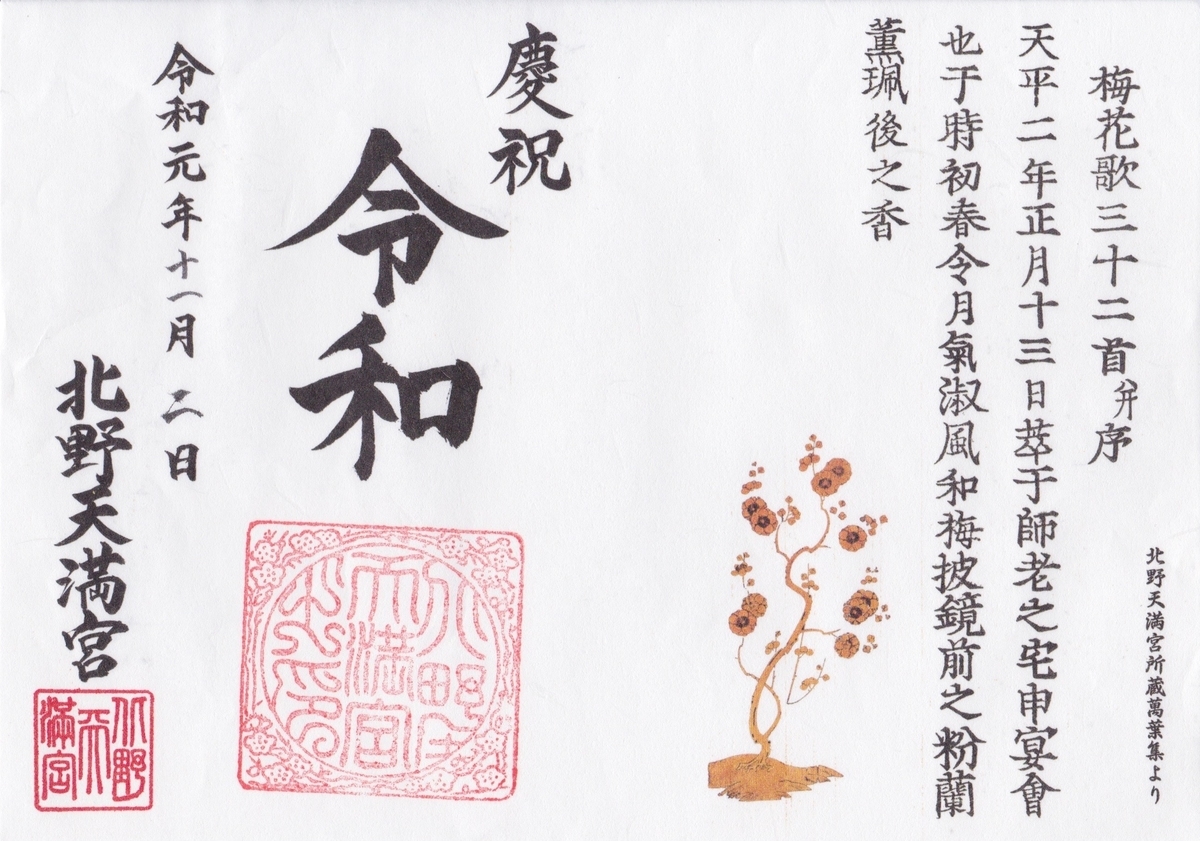 北野天満宮所蔵萬葉集より
梅花歌三十二首并序
天平二年正月十三日萃于師老之宅申宴會
也于時初春令月氣淑風和梅披鏡前之粉蘭
薫珮後之香
慶祝
令和
令和元年十一月二日
北野天満宮
北野
天
滿宮